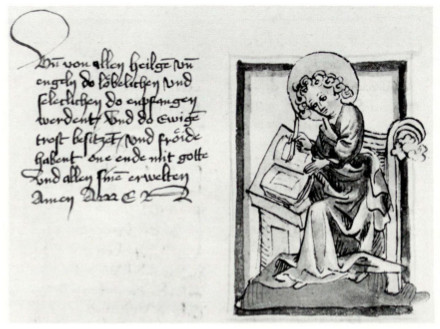 Vnd von allen heilgē vn̄
engeln do lobelichen vnd
selecklichen do enpfangen
werdent / vnd do ewige
trost besitzēt / vnd fröide
habent one ende mit gotte
vnd allen sinē erwelten
Amen